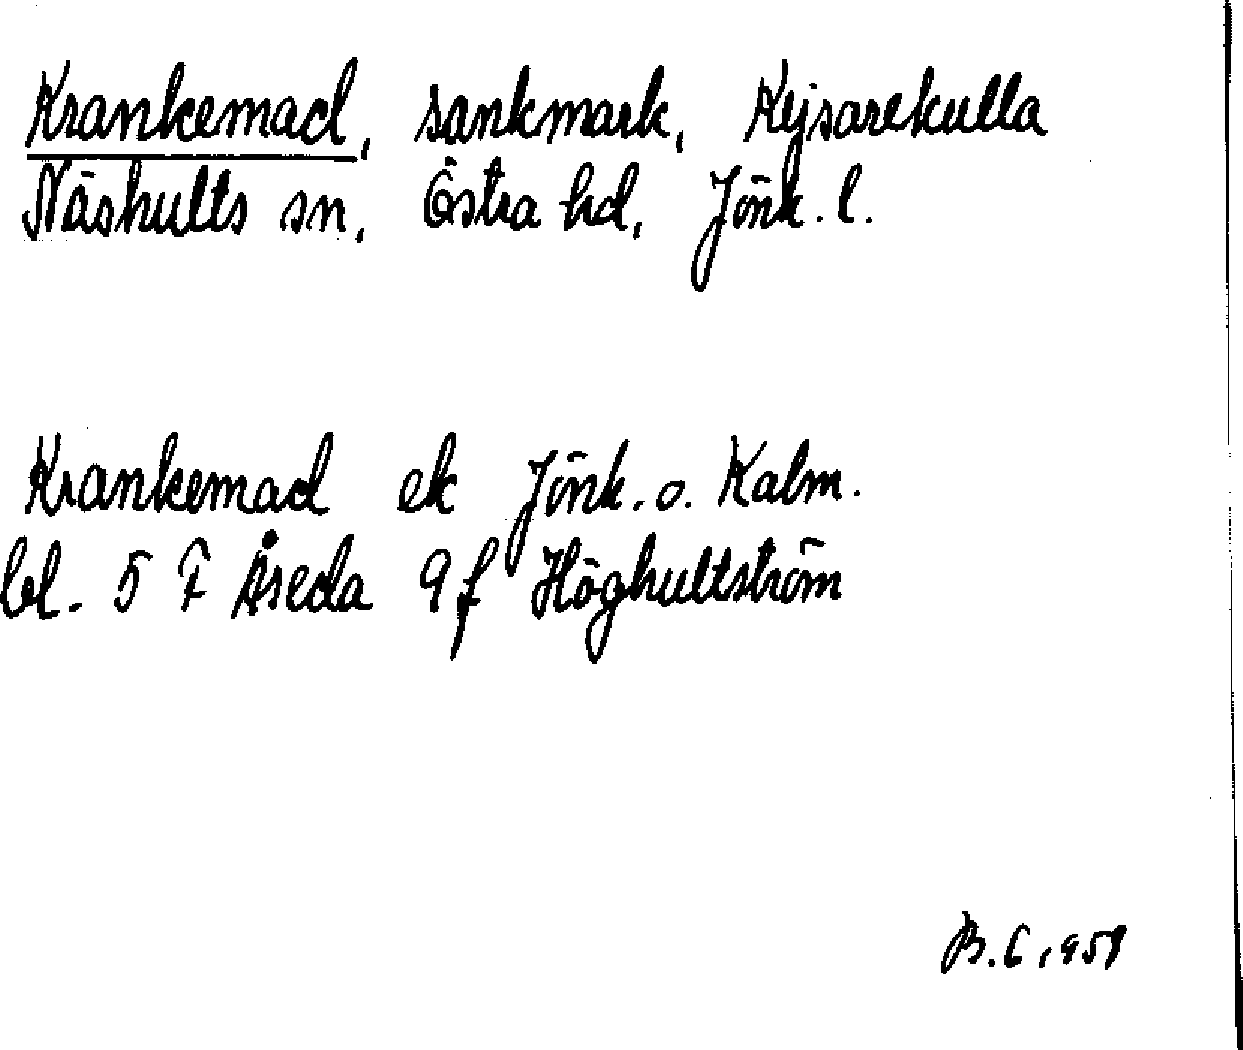 Krankemad, sankmark, Kejsarekulla
Näshults sn, Östra hd, Jönk. l.
Krankemad ek Jönk. o. Kalm.
bl. 5 F Åseda 9f Höghultström